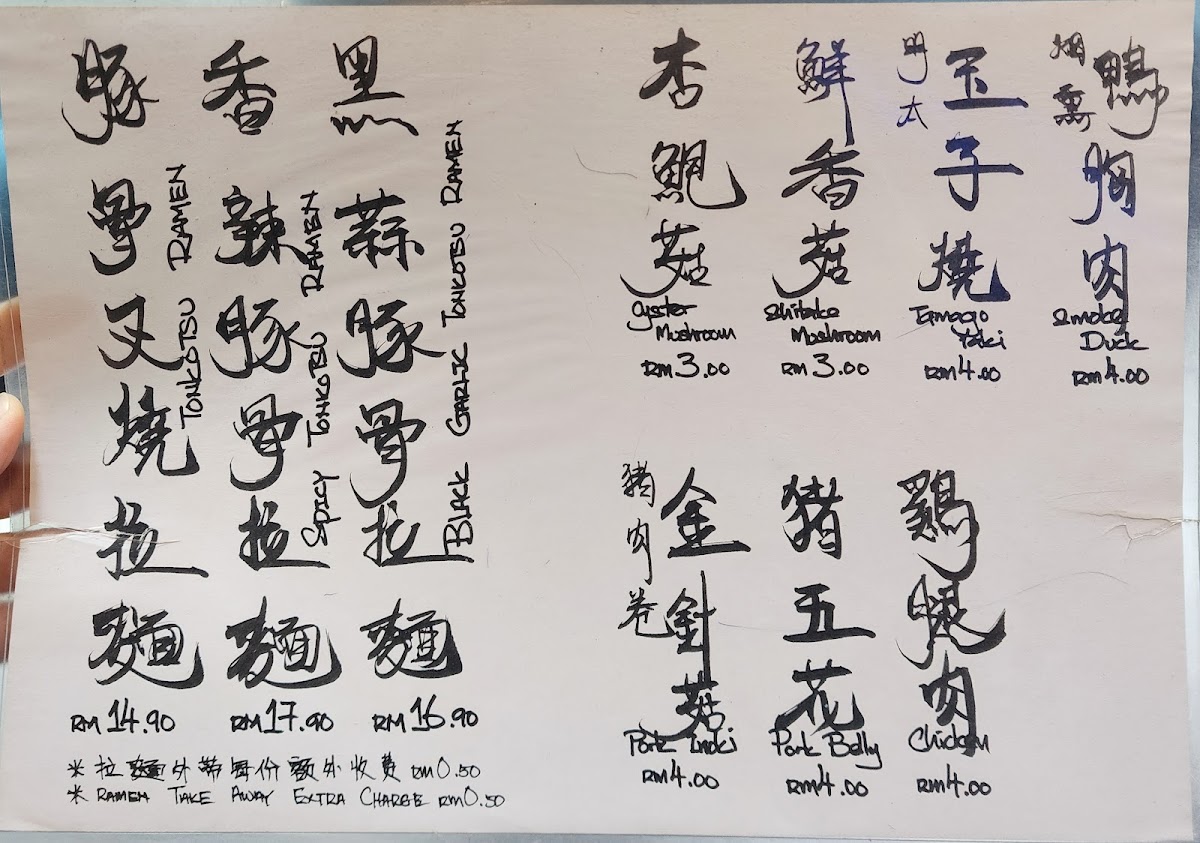 豚骨叉燒拉麵
TONKOTSU RAMEN
RM 14.90
香辣豚骨拉麵
SPICY TONKOTSU RAMEN
RM 17.90
黑蒜豚骨拉麵
BLACK GARLIC TONKOTSU RAMEN
RM 16.90
* 拉麵外帶每份額外收費 RM0.50
* RAMEN TAKE AWAY EXTRA CHARGE RM0.50
杏鮑菇
Oyster
Mushroom
RM3.00
鮮香菇
Shitake
Mushroom
RM3.00
明太
玉子燒
Tamago
Yaki
RM4.00
烟熏
鴨胸肉
Smoked
Duck
RM4.00
豬肉卷
金針菇
Pork Enoki
RM4.00
豬五花
Pork Belly
RM4.00
鷄腿肉
Chicken
RM4.00